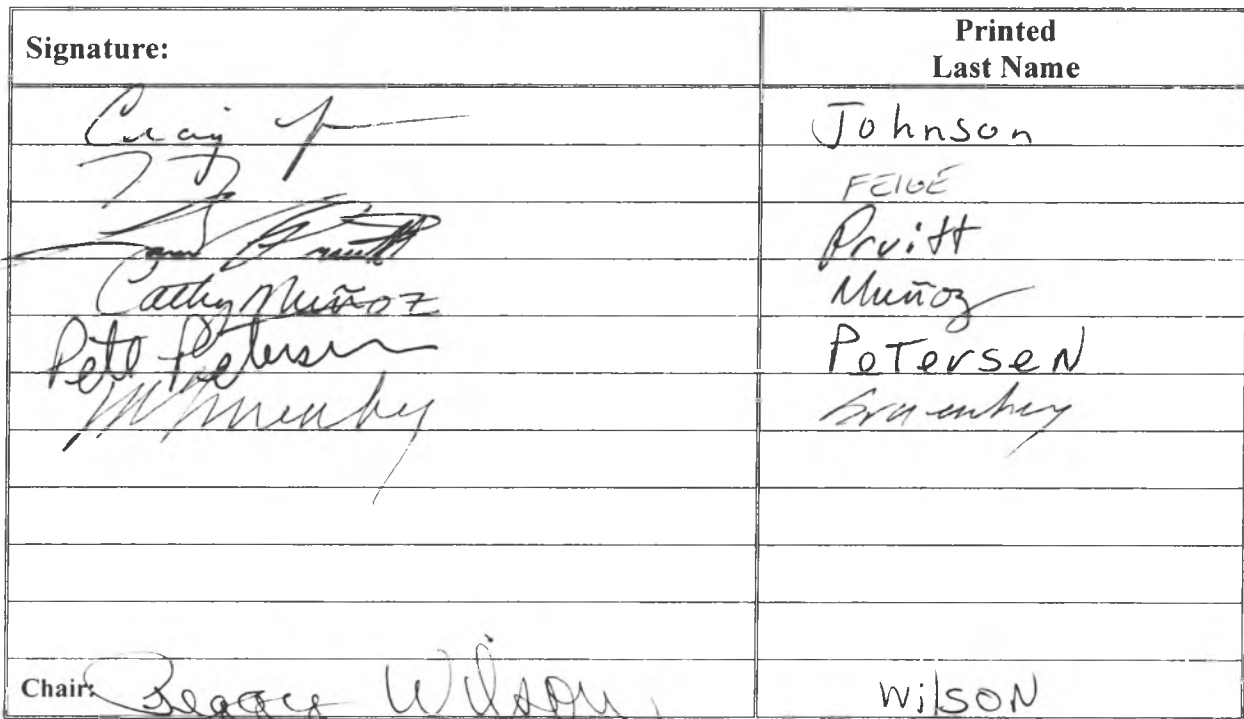 Signature: Printed
Last Name
Craig Johnson
FEIGE
Pruitt
Cathy Muñoz Muñoz
Pete Petersen PeTerseN
Gruenberg
Chair: Peggy Wilson WilsoN